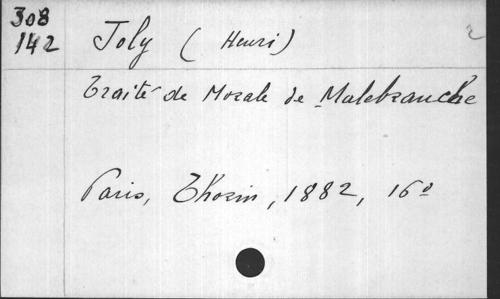 308
142
Joly (Henri)
2
Traité de Morale de Malebranche
Paris, Thorin, 1882, 16º